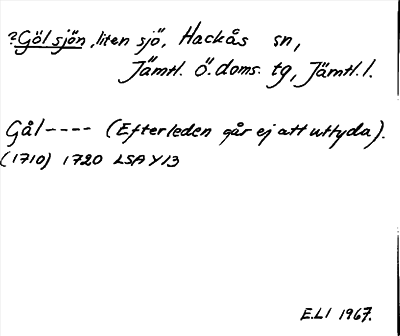 ?Gölsjön, liten sjö, Hackås sn,
Jämtl. Ö. doms. tg, Jämtl. l.
Gål---- (Efterleden går ej att uttyda).
(1710) 1720 LSA Y13
E.LI 1967.